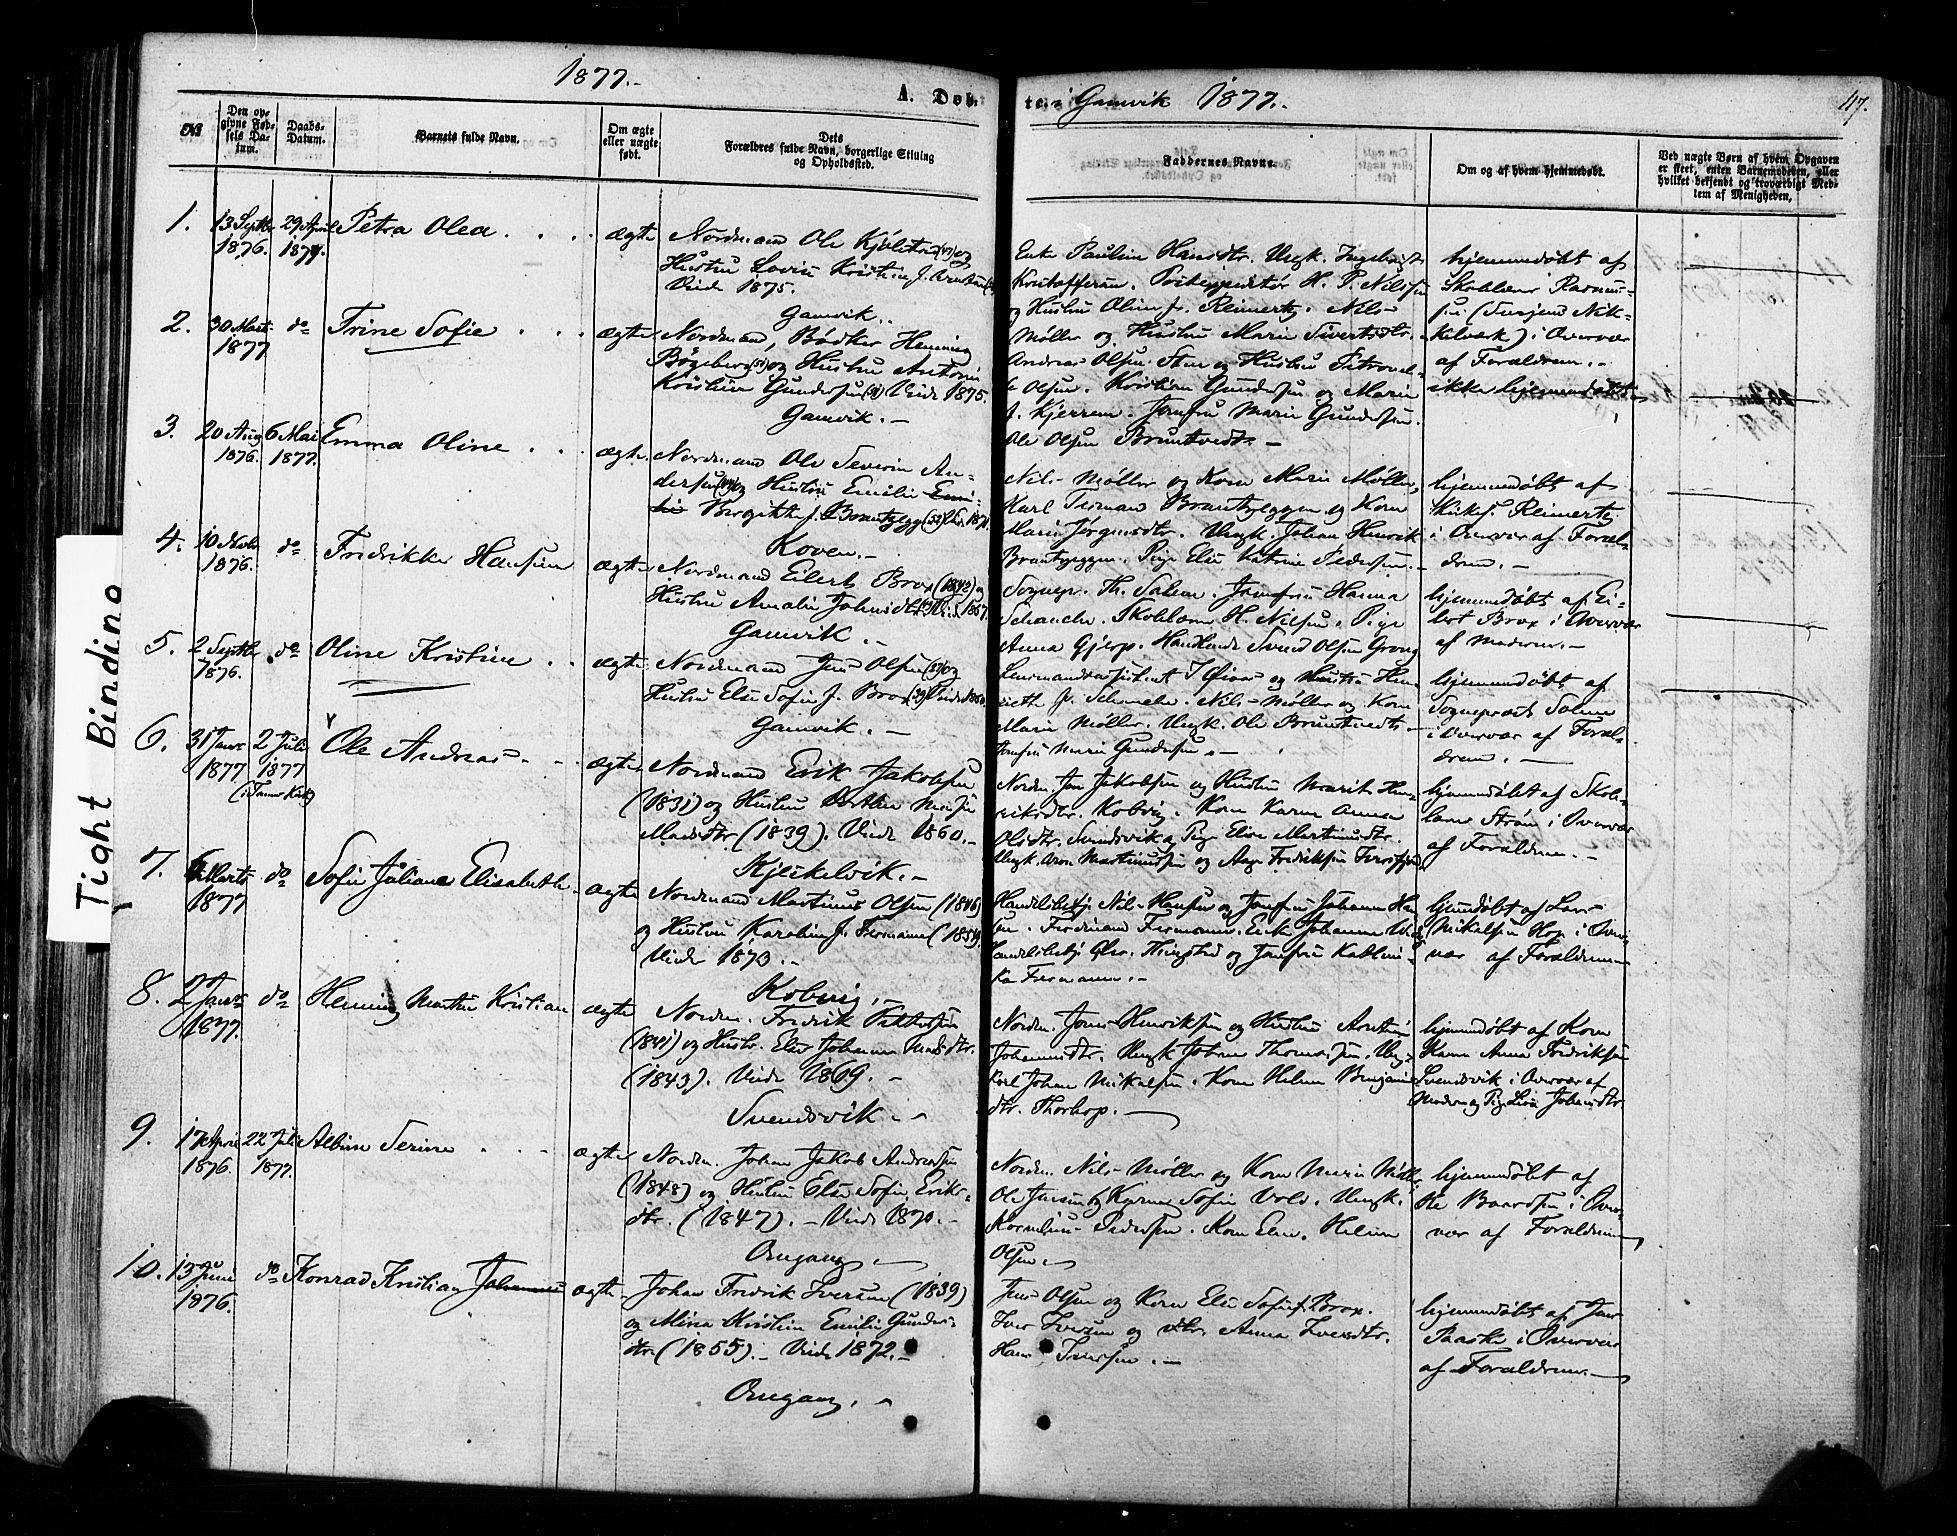 1877.
A. Døb
te i Gamvik 1877.
47.
No
Den op-
givne Fød-
sels Da-
tum.
Daabs-
Datum.
Barnets fulde Navn.
Om ægte
eller uægte
født.
Dets
Forældres fulde Navn, borgerlige Stilling
og Opholdssted.
Faddernes Navne.
Om og af hvem hjemmedøbt.
Ved uægte Børn af hvem Opgaven
er skeet, enten Barnemoderen, eller
hvilket bekjendt og troværdigt Med-
lem af Menigheden.
Tight Binding
1. 13 Septbr 1876. 29 April 1877. Petra Olea ægte
Nordmand Ole
Hustru Lovise Kristine
Viede 1875.
Gamvik.
Enke Pauline Hansdtr. Ungk. Ingebrigt
Kristoffersen. Postexpeditør H. P. Nilsen
og Hustru Oline f. Reinertz. Nils
Møller og Hustru Marie Sivertsdtr.
hjemmedøbt af
Skolelærer Rasmus-
sen i Overvær
af Forældrene.
2. 30 Marts 1877 do Trine Sofie ægte
Nordmand, Bødker Henning
Bøgeberg og Hustru Antonie
Kristine Gundersen Viede 1875.
Gamvik.
Andreas Olsen Sten og Hustru Petronel-
le Olsen. Kristian Gundersen og Marie
f. Kjerrem. Jomfru Marie Gundersen.
Ole Olsen Bruntvedt.
ikke hjemmedøbt
3. 20 Aug 1876. 6 Mai 1877. Emma Oline ægte
Nordmand Ole Severin An-
dersen og Hustru Emilie
Birgitte f. Brantzeg
Koven.
Nils Møller og Kone Marie Møller,
Karl Tieman Brantzeggen og Kone
Marie Jørgensdtr. Ungk. Johan Henrik
Brantzeggen. Pige Else Katrine Pedersen.
hjemmedøbt af
Reinertz
i Overvær af Foræl-
drene.
4. 10 Novb 1876. do Fredrikke Hansine ægte
Nordmand Eilert Brox (1842) og
Hustru Amalie Johnsdtr. Viede 1867.
Gamvik.
Sognepr. Th. Solem. Jomfru Hanna
Schanche. Skolelærer H. Nilsen. Pige
Anna Gjerp. Handlende Svend Olsen Grong
hjemmedøbt af Ei-
lert Brox i Overvær
af moderen.
5. 2 Septbr 1876. do Oline Kristine ægte
Nordmand Jens Olsen (37) og
Hustru Else Sofie f. Brox (39) Viede 1860.
Gamvik.
Lensmandsassistent I. Øiaas og Hustru Hen-
riette f. Schanche. Nils Møller og Kone
Marie Møller. Ungk. Ole Bruntvedt
Jomfru Marie Gundersen.
hjemmedøbt af
Sogneprest Solem
i Overvær af Foræl-
drene.
6. 31 Janr 1877 2 Juli 1877 (i Tanen Kirke) Ole Andreas ægte
Nordmand Erik Jakobsen
(1831) og Hustru Berthe Marie
Madsdtr (1839). Viede 1860.
Kjeikelvik.
Nordm. Jon Jakobsen og Hustru Marit Hen-
riksdtr. Kobvig. Kone Karen Anna
Olsdtr. Svendsvik og Pige Elise Martinusdtr.
Ungk. Aron Martinussen og Aage Fredriksen Iversfjord
hjemmedøbt af Skole-
lærer Strøm i Overvær
af Forældrene.
7. 6 Marts 1877 do Sofie Juliane Elisabeth ægte
Nordmand Martinus Olsen (1846)
og Hustru Karoline f. Fermann
Viede 1873.
Kobvig.
Handelsbetj. Nils Hansen og Jomfru Johanna Han-
sen. Ferdinand Fermann. Enke Johanne
Handelsbetj. Olav Hingstad og Jomfru Kathin-
ka Fermann.
hjemmedøbt af Lars
Mikalsen Hop i Over-
vær af Forældrene
8. 2 Janr 1877. do Henning Martin Kristian ægte
Nordm. Fredrik Pettersen
(1841) og Hustr. Else Johanna Madsdtr.
(1843). Viede 1869.
Svendsvik.
Nordm. Jonas Henriksen og Hustru
Johannesdtr. Ungk Johan Thomassen. Ungk.
Karl Johan Mikalsen. Kone Helene Benjamins-
dtr. Thorhop.
hjemmedøbt af Kone
Karen Anna Fredriksen
Svendsvik i Overvær af
Moderen og Pige Lisa Johansdtr
9. 17 April 1876. 22 Juli 1877. Albine Serine ægte
Nordm. Johan Jakob Andersen
(1848) og Hustru Else Sofie Eriks-
dtr. (1847). Viede 1870.
Omgang.
Nordm. Nils Møller og Kone Marie Møller
Ole Jensen og Karen Sofie Vold. Ungk.
Kornelius Pedersen. Kone Elen Helene
Olsen.
hjemmedøbt af
Ole Baardsen i Over-
vær af Forældrene
10. 13 Juni 1876. do Konrad Kristian Johannes ægte
Johan Fredrik Iversen (1839)
og Mina Kristine Emilie Gunders-
dtr (1855). Viede 1872.
Omgang.
Jens Olsen og Kone Else Sofie f. Brox.
Iver Iversen og dtr. Anna Iversdtr.
Hans Iversen.
hjemmedøbt af
i Overvær
af Forældrene.